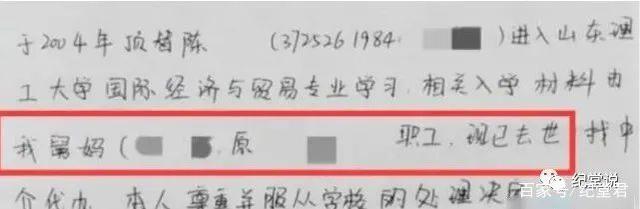 于2004年顶替陈 (372526 1984. )进入山东理
工大学国际经济与贸易专业学习,相关入学材料由
我舅妈( ,原 职工,现已去世)找中
介代办,本人尊重并服从学校的处理决定
纪堂说
百家号/纪堂君